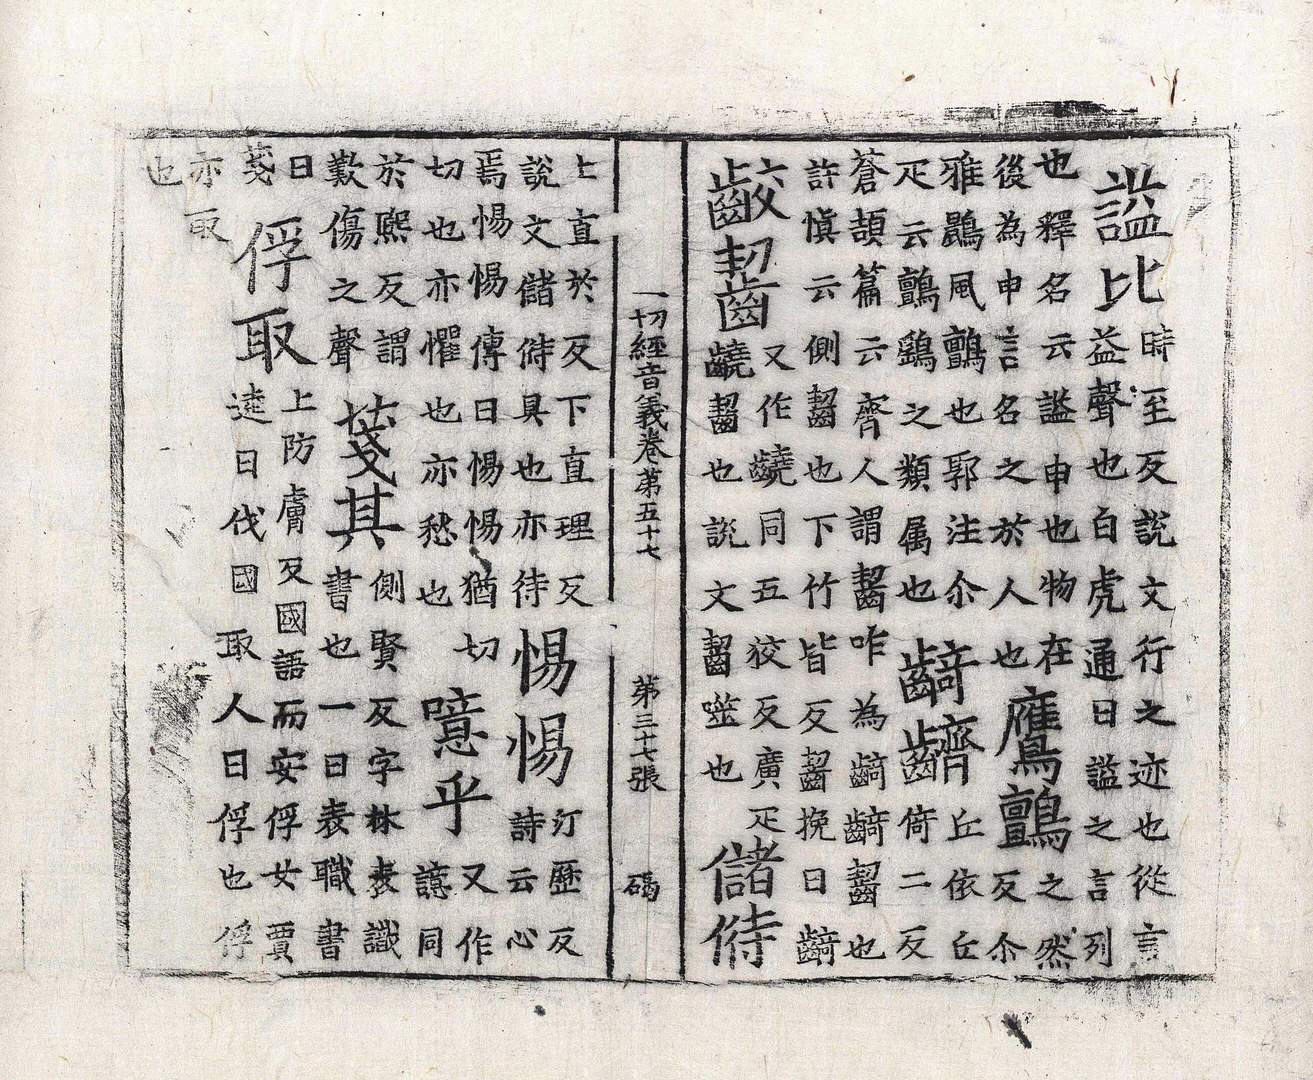 謚比
時至反說文行之迹也從言
益聲也白虎通曰謚之言列
也釋名云謚申也物在
後為申言名之於人也
鷹鸇
之然
反尒
雅鸇風鸇也郭注尒
疋云鸇鷂之類属也
齮䶩
丘依丘
倚二反
蒼頡篇云齊人謂齧咋為齮齮齧也
許慎云側齧也下竹皆反齧挽曰齮
齩齧
又作䶧同五狡反廣疋
䶧齧也說文齧噬也
儲偫
一切經音義卷第五十七 第三十七張 碣
上直於反下直理反
說文儲偫具也亦待
惕惕
汀歷反
詩云心
焉惕惕傳曰惕惕猶切
切也亦懼也亦愁也
噫乎
又作
譩同
於熙反謂
歎傷之聲
箋其
側賢反字林表識
書也一曰表職書
曰
箋
俘取
上防膚反國語而安俘女賈
逵曰伐國取人曰俘也俘
亦取
也